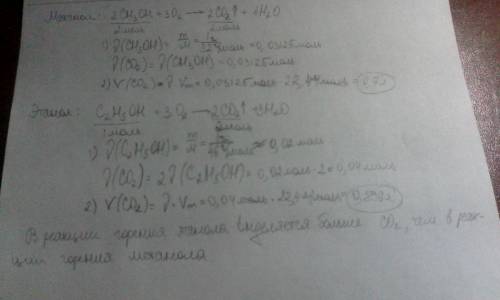 Метанол: 2CH₃OH + 3O₂ → 2CO₂↑ + 4H₂O
2моль 2моль
1) ν(CH₃OH) = m/M = моль = 0,03125моль
ν(CO₂) = ν(CH₃OH) = 0,03125моль
2) V(CO₂) = ν · Vm = 0,03125моль · 22,4л/моль = 0,7л
Этанол: C₂H₅OH + 3O₂ → 2CO₂↑ + 3H₂O
1моль 2моль
1) ν(C₂H₅OH) = m/M = ≈ 0,02моль
ν(CO₂) = 2ν(C₂H₅OH) = 0,02моль · 2 = 0,04моль
2) V(CO₂) = ν · Vm = 0,04моль · 22,4л/моль =
В реакции горения этанола выделяется больше CO₂, чем в реак-
ции горения метанола